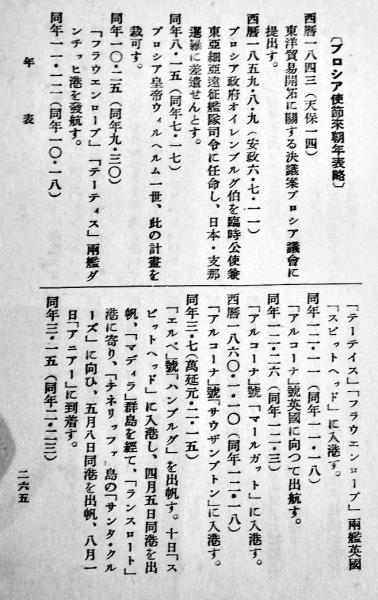 〔プロシア使節來朝年表略〕
西暦一八四三（天保一四）
東洋貿易開拓に關する決議案プロシア議會に
提出す。
西暦一八五九・八・九（安政六・七・一一）
プロシア政府オイレンブルグ伯を臨時公使兼
東亞細亞遠征艦隊司令に任命し、日本・支那
暹羅に差遣せんとす。
同年八・一五（同年七・一七）
プロシア皇帝ウィルヘルム一世、此の計畫を
裁可す。
同年一〇・二五（同年九・三〇）
「フラウエンローブ」「テーティス」兩艦ダ
ンチッヒ港を發航す。
同年一一・一二（同年一〇・一八）
「テーテイス」「フラウエンローブ」兩艦英國
「スピットヘッド」に入港す。
同年一二・一一（同年一一・一八）
「アルコーナ」號英國に向つて出航す。
同年一二・二六（同年一二・三）
「アルコーナ」號「マールガット」に入港す。
西暦一八六〇・一・一〇（同年一二・一八）
「アルコーナ」號「サウザンプトン」に入港す。
同年三・七（萬延元・二・一五）
「エルベ」號「ハンブルグ」を出帆す。十日「ス
ピットヘッド」に入港し、四月五日同港を出
帆、「マディラ」群島を經て、「ランスロート」
港に寄り、「テネリッファ」島の「サンタ・クル
ーズ」に向ひ、五月八日同港を出帆、八月一
日「アニアー」に到着す。
同年三・一五（同年二・二三）
年表
二六五